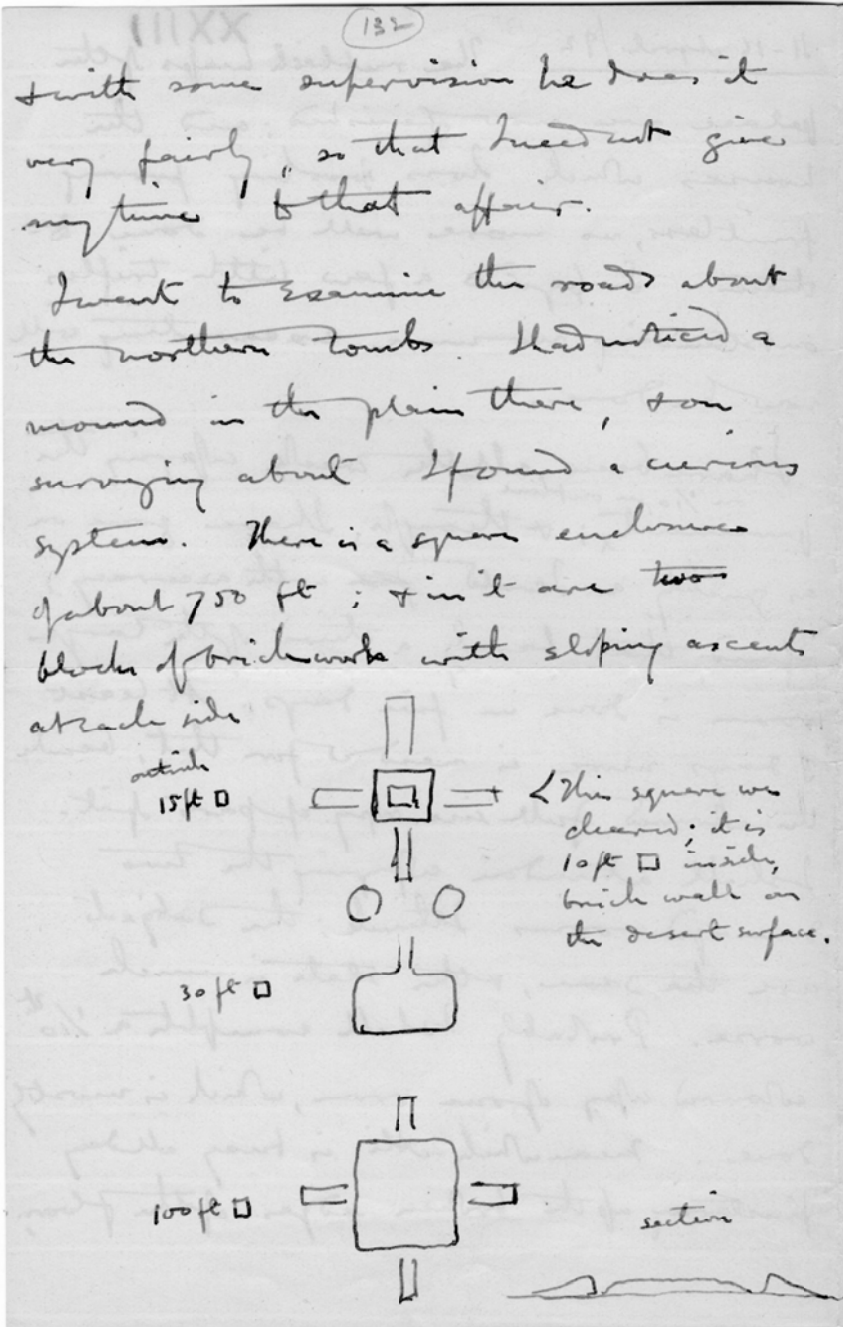 132
XXIII
& with some supervision he does it
very fairly, so that I need not give
my time to that affair.
I went to examine the roads about
the northern tombs. I had noticed a
mound in the plain there, & on
surveying about I found a curious
system. There is a square enclosure
of about 750 ft ; & in it are two
blocks of brickwork with sloping ascents
at each side
outside
15 ft □
< This square was
cleared; it is
10 ft □ inside,
brick wall on
the desert surface.
30 ft □
100 ft □
section